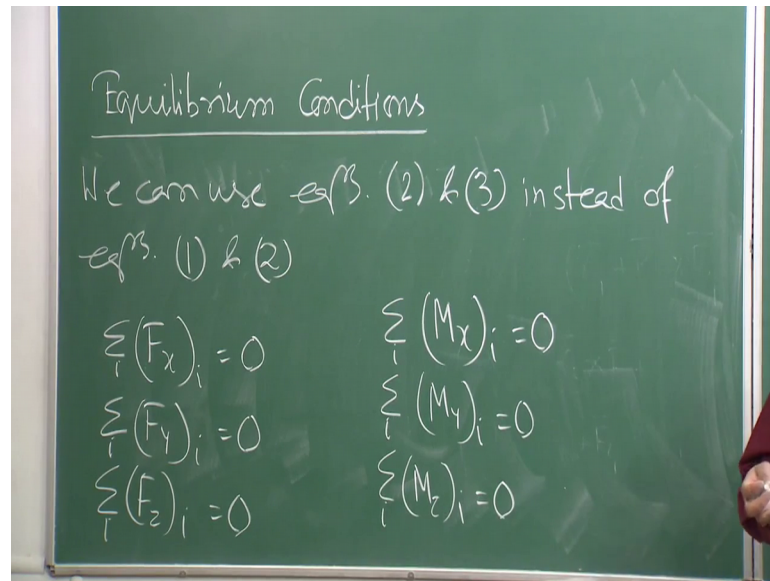 Equilibrium Conditions
We can use eqns. (2) & (3) instead of
eqns. (1) & (2)
∑i (Fx)i = 0
∑i (Fy)i = 0
∑i (Fz)i = 0
∑i (Mx)i = 0
∑i (My)i = 0
∑i (Mz)i = 0